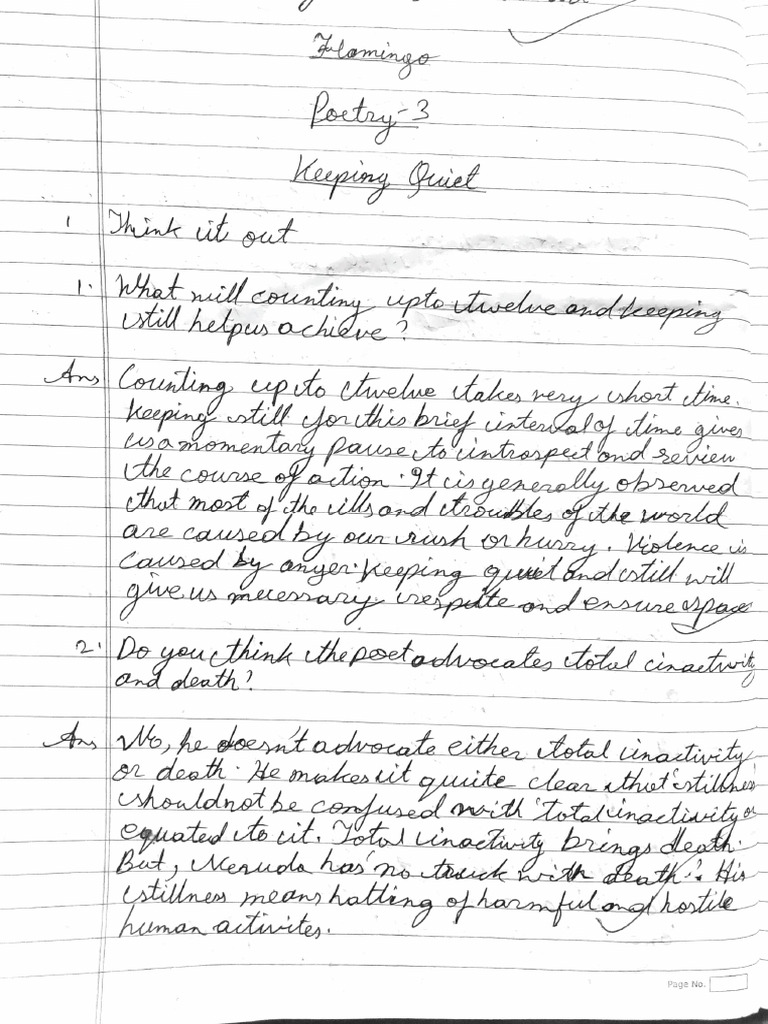 Flamingo
Poetry-3
Keeping Quiet
1 Think it out
1. What will counting upto twelve and keeping
still help us achieve?
Ans Counting up to twelve takes very short time.
Keeping still for this brief interval of time gives
us a momentary pause to introspect and review
the course of action. It is generally observed
that most of the ills and troubles of the world
are caused by our rush or hurry. Violence is
caused by anger. Keeping quiet and still will
give us necessary respite and ensure space
2. Do you think the poet advocates total inactivity
and death?
Ans No, he doesn't advocate either total inactivity
or death. He makes it quite clear that 'stillness
should not be confused with 'total inactivity or
equated to it. Total inactivity brings death.
But, Neruda has 'no truck with death'. His
stillness means halting of harmful and hostile
human activites.
Page No.